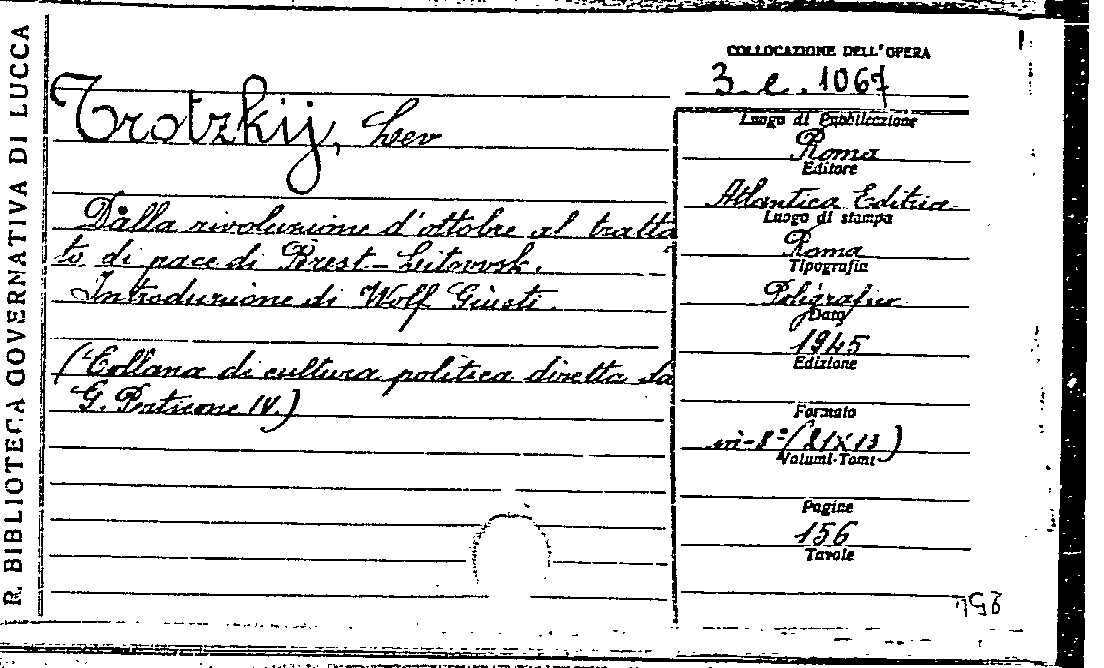 R. BIBLIOTECA GOVERNATIVA DI LUCCA
COLLOCAZIONE DELL'OPERA
3. e. 1067
Trotzkij, Lev
Dalla rivoluzione d'ottobre al tratta
to di pace di Brest-Litovsk.
Introduzione di Wolf Giusti.
(Collana di cultura politica diretta da
G. IV.)
Luogo di Pubblicazione
Roma
Editore
Atlantica Editrice
Luogo di stampa
Roma
Tipografia
Poligrafico
Data
1945
Edizione
Formato
in-8°(21X13)
Volumi-Tomi
Pagine
156
Tavole